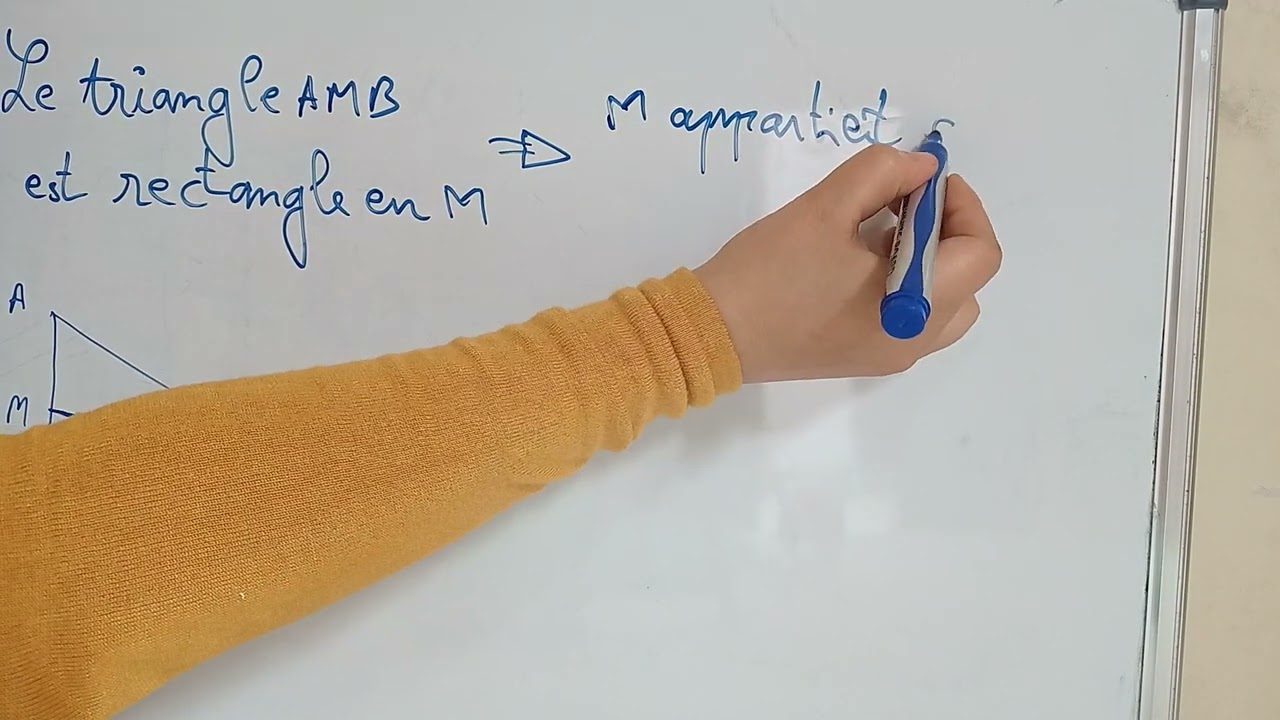 Le triangle AMB
est rectangle en M
⇒ M appartient
A
M